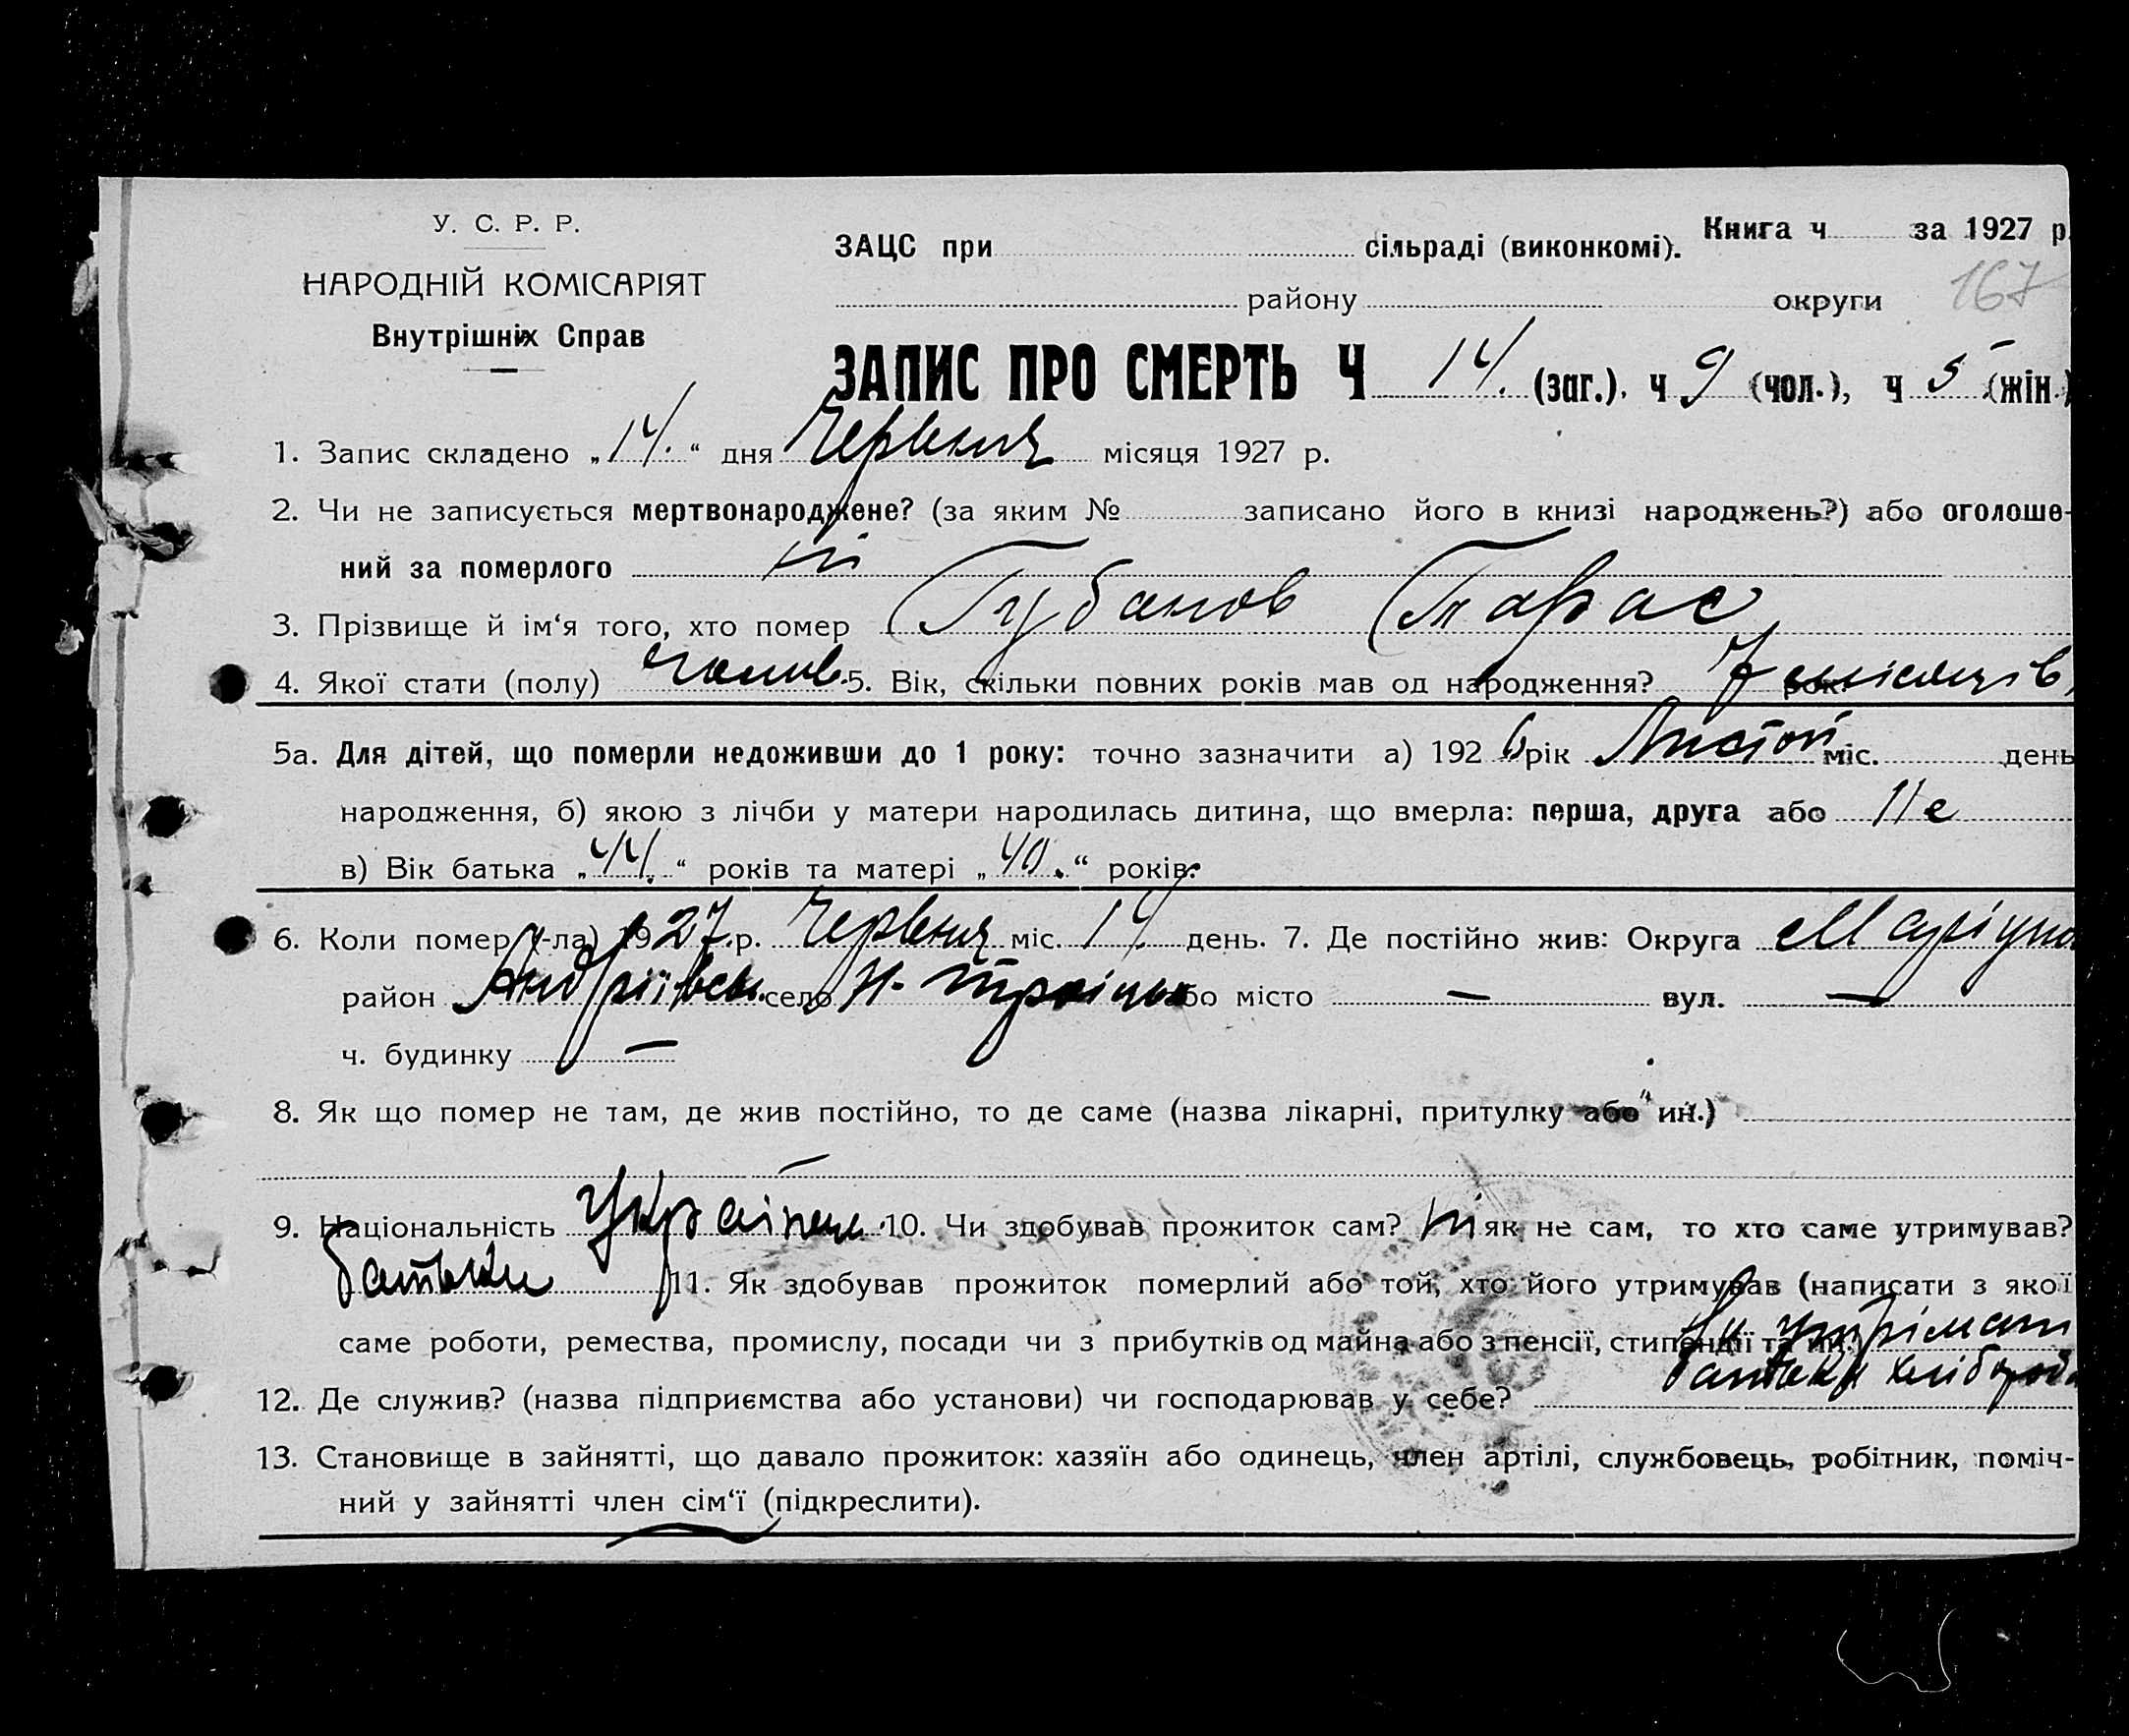 У. С. Р. Р.
НАРОДНІЙ КОМІСАРІЯТ
Внутрішніх Справ
Книга ч за 1927 р.
ЗАЦС при сільраді (виконкомі).
району округи
167
ЗАПИС ПРО СМЕРТЬ Ч 14. (заг.). ч 9 (чол.), ч 5 (жін.)
1. Запис складено „14.“ дня Червня місяця 1927 р.
2. Чи не записується мертвонароджене? (за яким № записано його в книзі народжень?) або оголоше-
ний за померлого ні
3. Прізвище й ім‘я того, хто помер Губанов Тарас
4. Якої стати (полу) чолов. 5. Вік, скільки повних років мав од народження? 7 рок. місяців
5а. Для дітей, що померли недоживши до 1 року: точно зазначити а) 1926 рік Листоп міс. день
народження, б) якою з лічби у матери народилась дитина, що вмерла: перша, друга або 11е
в) Вік батька „44.“ років та матері „40.“ років.
6. Коли помер (-ла) 1927 р. Червня міс. 14. день. 7. Де постійно жив: Округа Маріупо
район Андріївськ. село Н-Троіцьк або місто — вул. —
ч. будинку —
8. Як що помер не там, де жив постійно, то де саме (назва лікарні, притулку або ин.)
—
9. Національність Украінец. 10. Чи здобував прожиток сам? Ні як не сам, то хто саме утримував?
батьки 11. Як здобував прожиток померлий або той, хто його утримував (написати з якої
саме роботи, ремества, промислу, посади чи з прибутків од майна або з пенсії, стипендії та ин.) На утріман
батьки хлібороб
12. Де служив? (назва підприємства або установи) чи господарював у себе?
13. Становище в зайнятті, що давало прожиток: хазяїн або одинець, член артілі, службовець, робітник, поміч-
ний у зайнятті член сім‘ї (підкреслити).